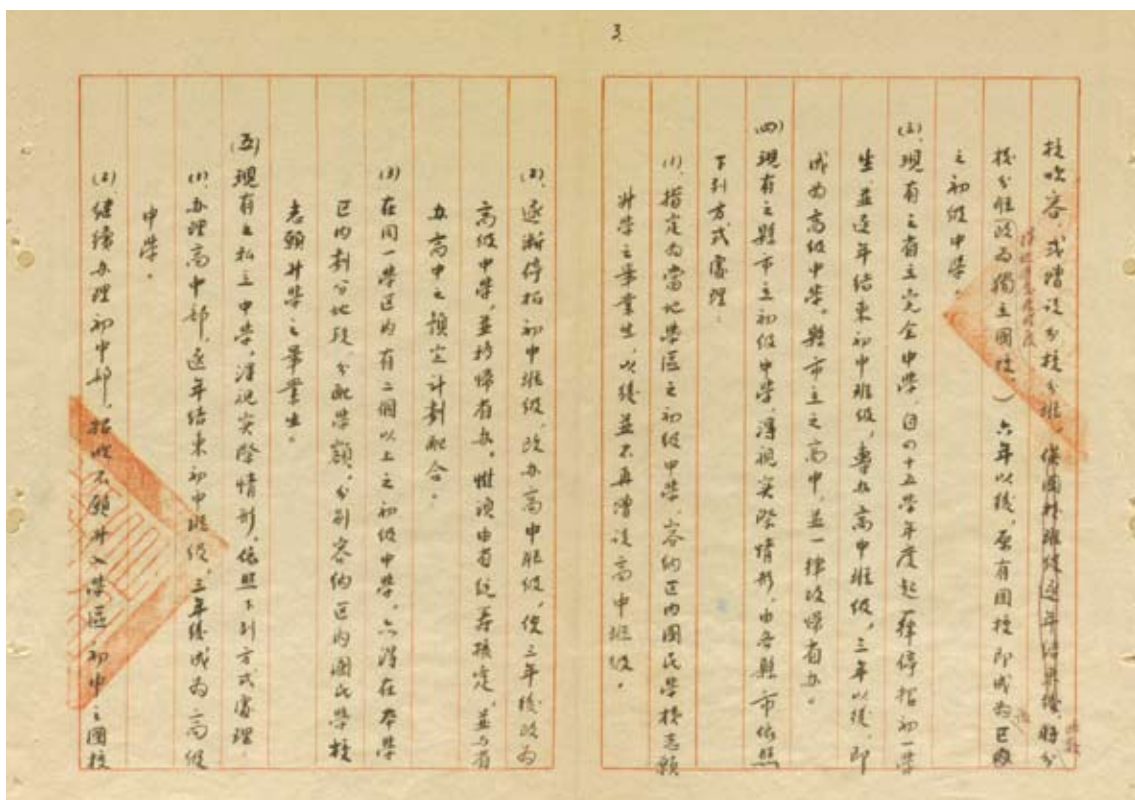 3.
校吹容，或增設分校分班。俟國校班級逐年結束後，將分
校分班改為獨立國校。）六年以後，原有國校即成為區內
之初級中學。
(三)現有之省立完全中學，自四十五學年度起一律停招初一學
生，並逐年結束初中班級，專辦高中班級，三年以後，即
成為高級中學。縣市立之高中，並一律改歸省辦。
(四)現有之縣市立初級中學，得視實際情形，由各縣市依照
下列方式處理：
(1)指定為當地學區之初級中學，容納區內國民學校志願
升學之畢業生，以後並不再增設高中班級。
(2)逐漸停招初中班級，改办高中班級，俟三年後改為
高級中學，並移歸省办，惟須由省統籌核定，並与省
办高中之預定計劃配合。
(3)在同一學區內有二個以上之初級中學，亦得在本學
區內劃分地段，分配學額，分別容納區內國民學校
志願升學之畢業生。
(五)現有之私立中學，得視實際情形，依照下列方式處理。
(1)办理高中部，逐年結束初中班級，三年後成為高級
中學。
(2)繼續办理初中部，招收不願升入學區初中之國校